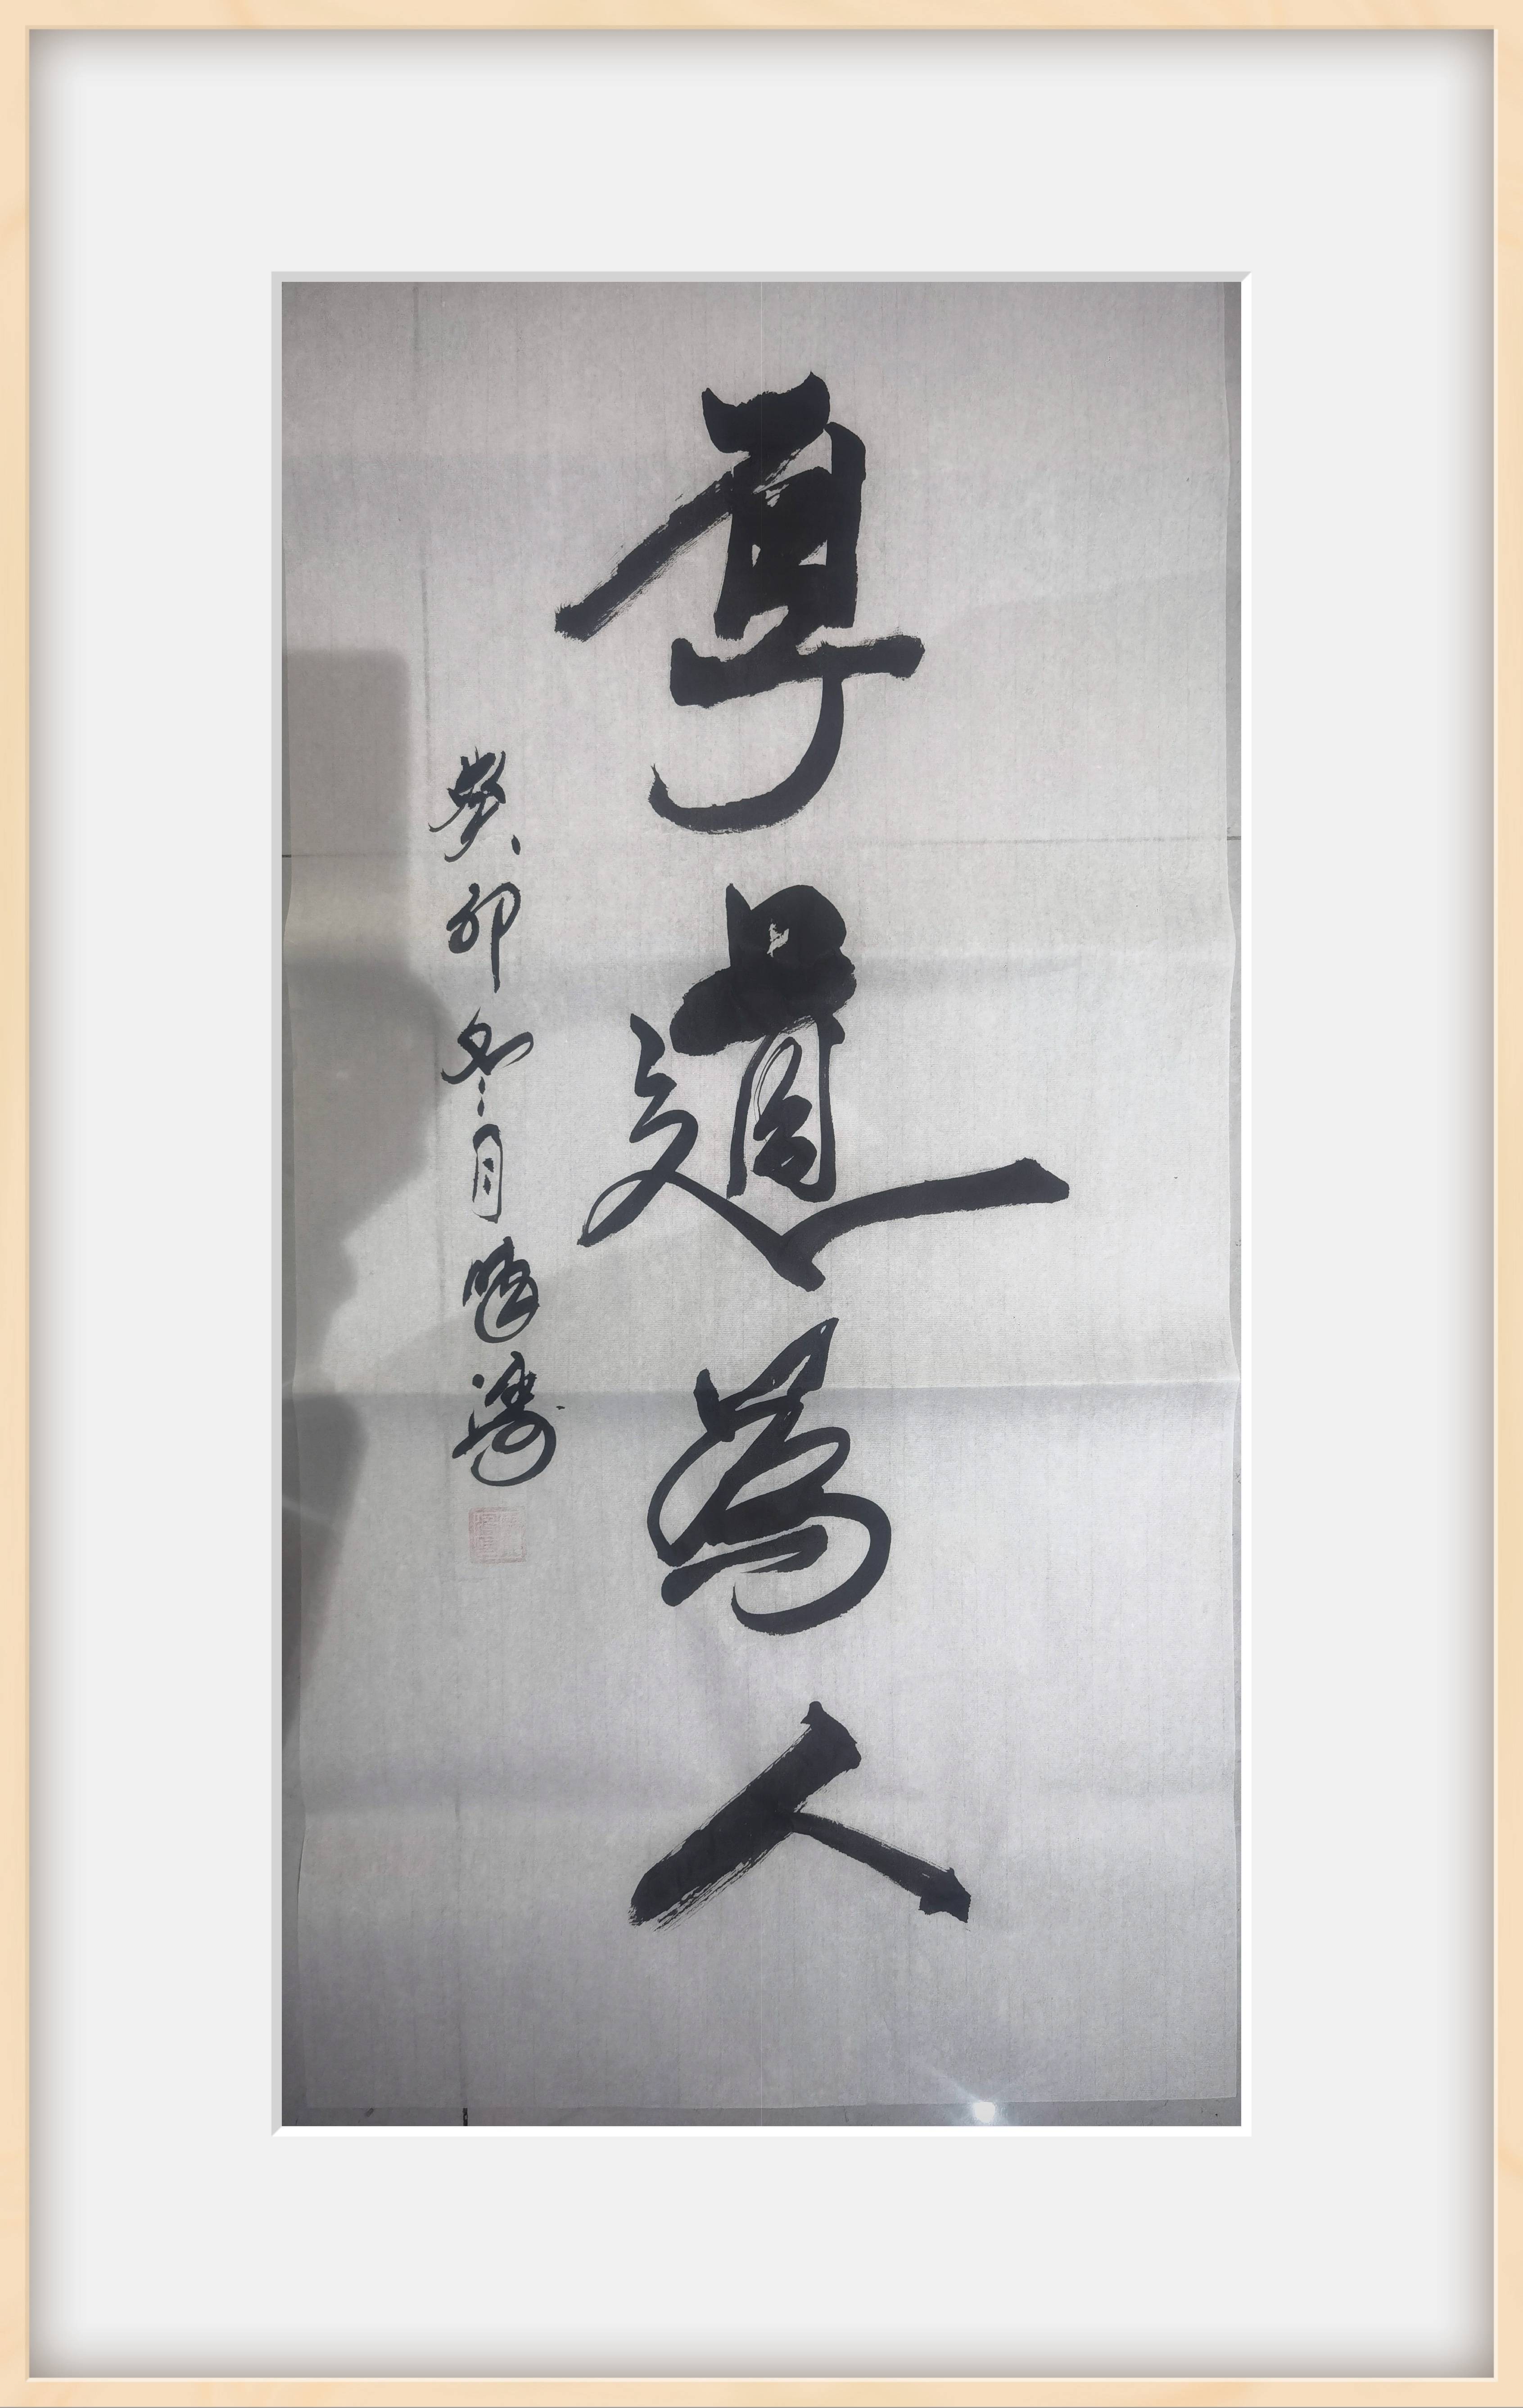 厚道為人
癸卯冬月曉濤